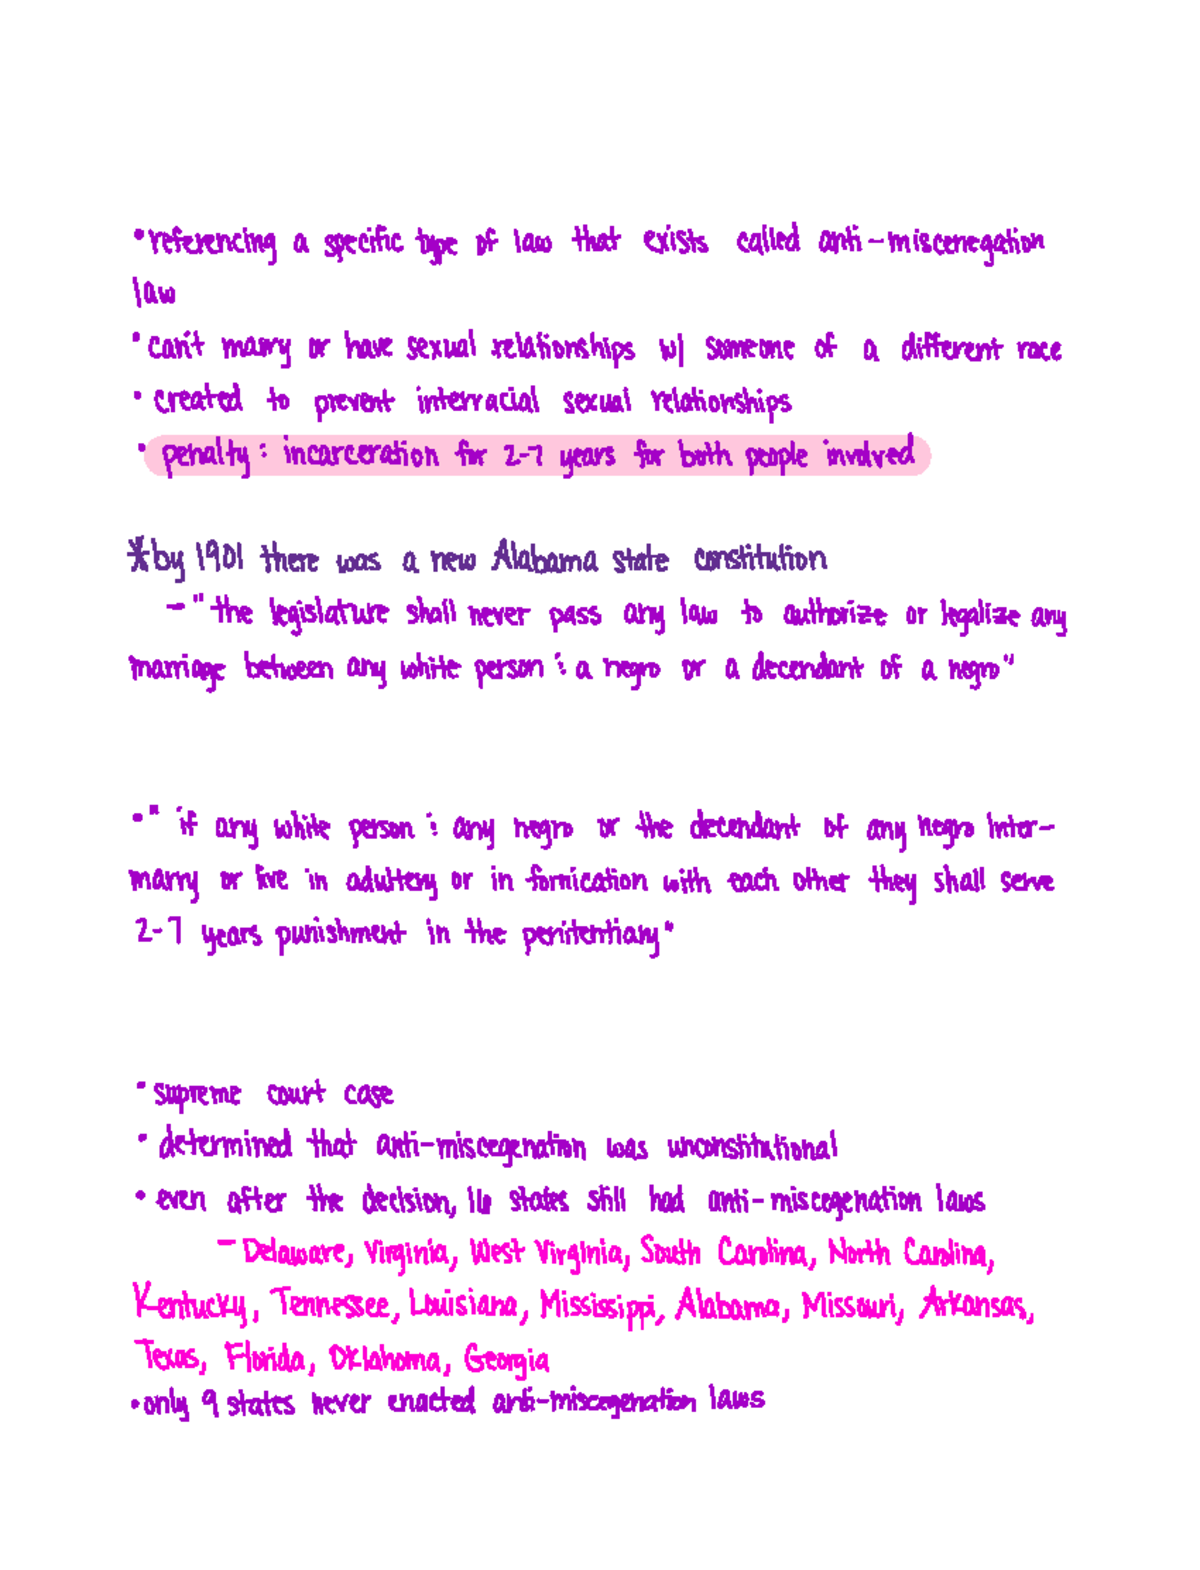 •referencing a specific type of law that exists called anti-miscenegation
law
•can't marry or have sexual relationships w/ someone of a different race
• created to prevent interracial sexual relationships
• penalty: incarceration for 2-7 years for both people involved
*by 1901 there was a new Alabama state constitution
- "the legislature shall never pass any law to authorize or legalize any
marriage between any white person & a negro or a decendant of a negro"
•" if any white person & any negro or the decendant of any negro inter-
marry or live in adultery or in fornication with each other they shall serve
2-7 years punishment in the penitentiary"
•supreme court case
• determined that anti-miscegenation was unconstitutional
• even after the decision, 16 states still had anti-miscegenation laws
- Delaware, Virginia, West Virginia, South Carolina, North Carolina,
Kentucky, Tennessee, Louisiana, Mississippi, Alabama, Missouri, Arkansas,
Texas, Florida, Oklahoma, Georgia
•only 9 states never enacted anti-miscegenation laws